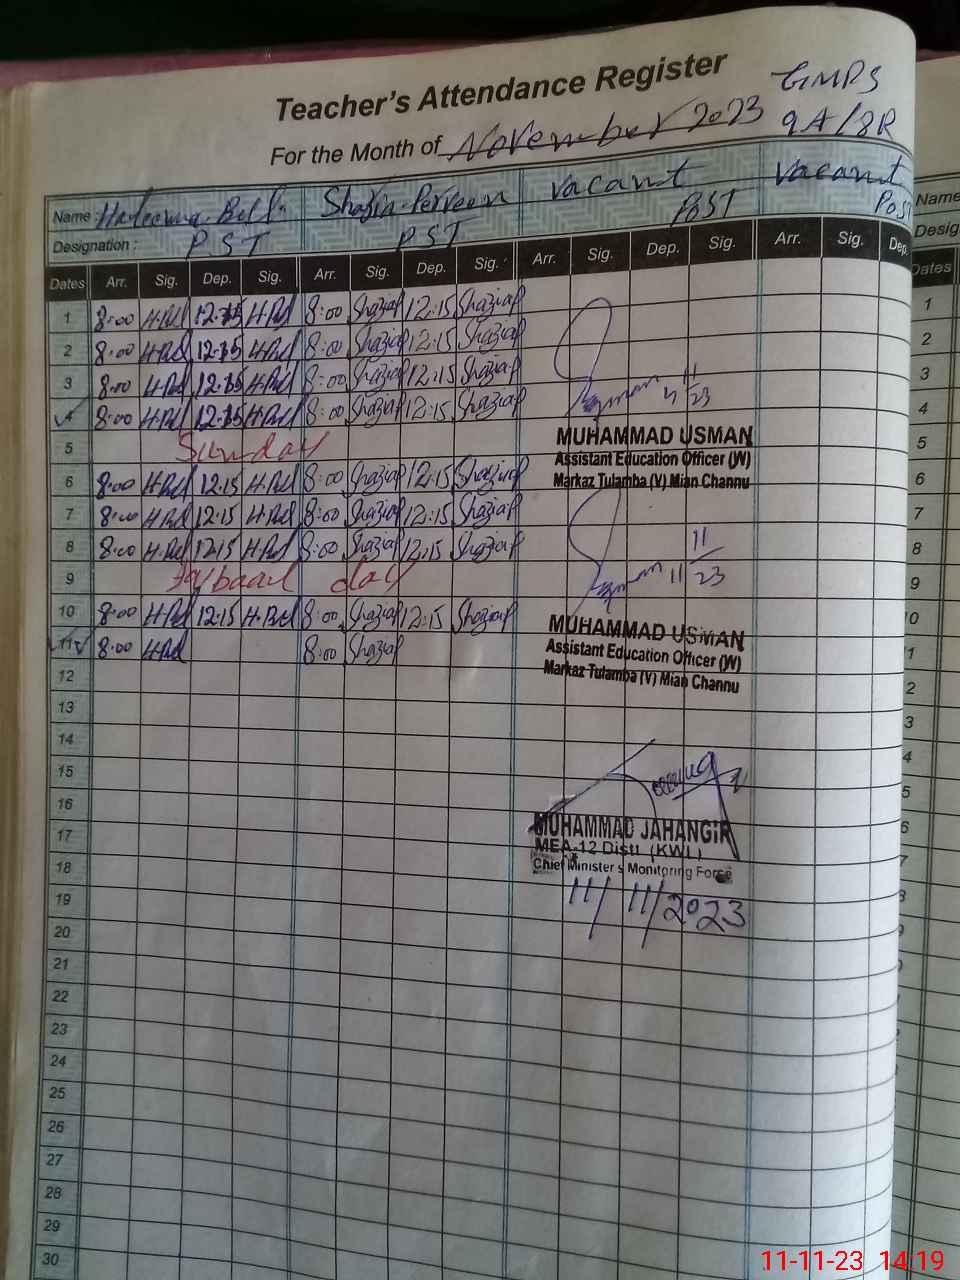 Teacher's Attendance Register
GMPS
For the Month of November 2023
9A/8R
Name : Haleema Bibi Shazia Perveen Vacant Post Vacant Post
Designation : PST PST
Dates Arr. Sig. Dep. Sig. Arr. Sig. Dep. Sig. Arr. Sig. Dep. Sig. Arr. Sig. Dep.
1 8:00 H.Bibi 12:15 H.Bibi 8:00 ShaziaP 12:15 ShaziaP
2 8:00 H.Bibi 12:15 H.Bibi 8:00 ShaziaP 12:15 ShaziaP
3 8:00 H.Bibi 12:15 H.Bibi 8:00 ShaziaP 12:15 ShaziaP
4 8:00 H.Bibi 12:15 H.Bibi 8:00 ShaziaP 12:15 ShaziaP
Usman 4 11/23
5 Sunday
MUHAMMAD USMAN
Assistant Education Officer (W)
Markaz Tulamba (V) Mian Channu
6 8:00 H.Bibi 12:15 H.Bibi 8:00 ShaziaP 12:15 ShaziaP
7 8:00 H.Bibi 12:15 H.Bibi 8:00 ShaziaP 12:15 ShaziaP
8 8:00 H.Bibi 12:15 H.Bibi 8:00 ShaziaP 12:15 ShaziaP
9 day
Usman 11 11/23
10 8:00 H.Bibi 12:15 H.Bibi 8:00 ShaziaP 12:15 ShaziaP
11 8:00 H.Bibi 8:00 ShaziaP
MUHAMMAD USMAN
Assistant Education Officer (W)
Markaz Tulamba (V) Mian Channu
12
13
14
15
16
17
MUHAMMAD JAHANGIR
MEA-12 Distt. (KWL)
Chief Minister's Monitoring Force
18
11/11/2023
19
20
21
22
23
24
25
26
27
28
29
30
Name
Desig
Dates
1
2
3
4
5
6
7
8
9
11-11-23 14:19